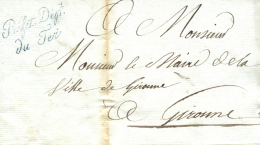 Préf.t Dép.t
du Ter
A Monsieur
Monsieur le Maire de la
Ville de Gironne
A Gironne